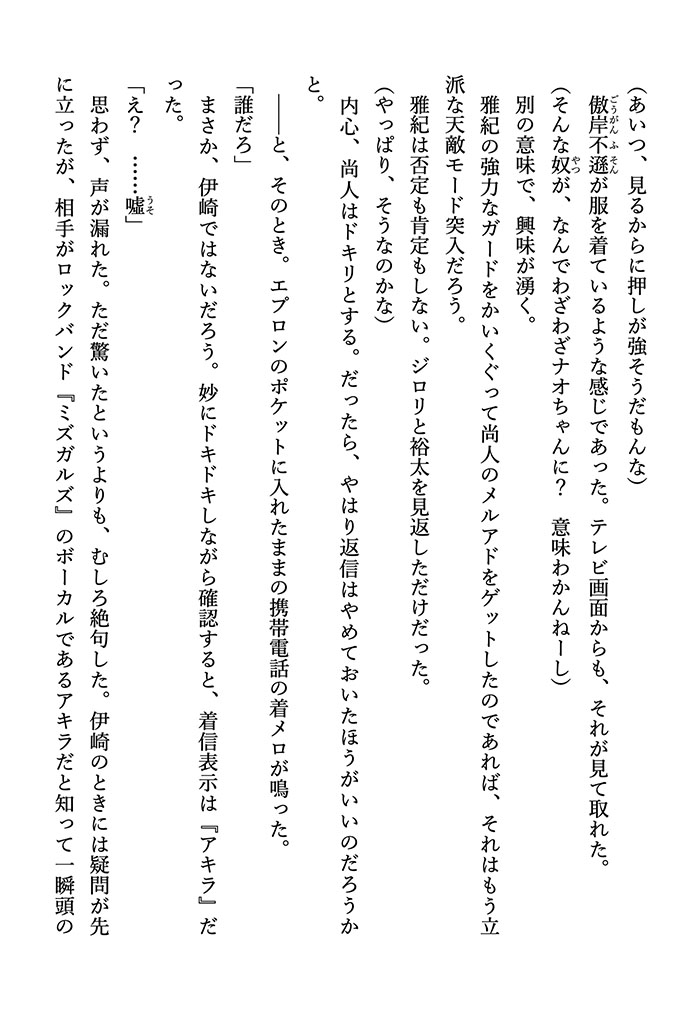 (あいつ、見るからに押しが強そうだもんな)
傲岸不遜が服を着ているような感じであった。テレビ画面からも、それが見て取れた。
(そんな奴が、なんでわざわざナオちゃんに？　意味わかんねーし)
別の意味で、興味が湧く。
雅紀の強力なガードをかいくぐって尚人のメルアドをゲットしたのであれば、それはもう立
派な天敵モード突入だろう。
雅紀は否定も肯定もしない。ジロリと裕太を見返しただけだった。
(やっぱり、そうなのかな)
内心、尚人はドキリとする。だったら、やはり返信はやめておいたほうがいいのだろうか
と。
――と、そのとき。エプロンのポケットに入れたままの携帯電話の着メロが鳴った。
「誰だろ」
まさか、伊崎ではないだろう。妙にドキドキしながら確認すると、着信表示は『アキラ』だ
った。
「え？　……嘘」
思わず、声が漏れた。ただ驚いたというよりも、むしろ絶句した。伊崎のときには疑問が先
に立ったが、相手がロックバンド『ミズガルズ』のボーカルであるアキラだと知って一瞬頭の